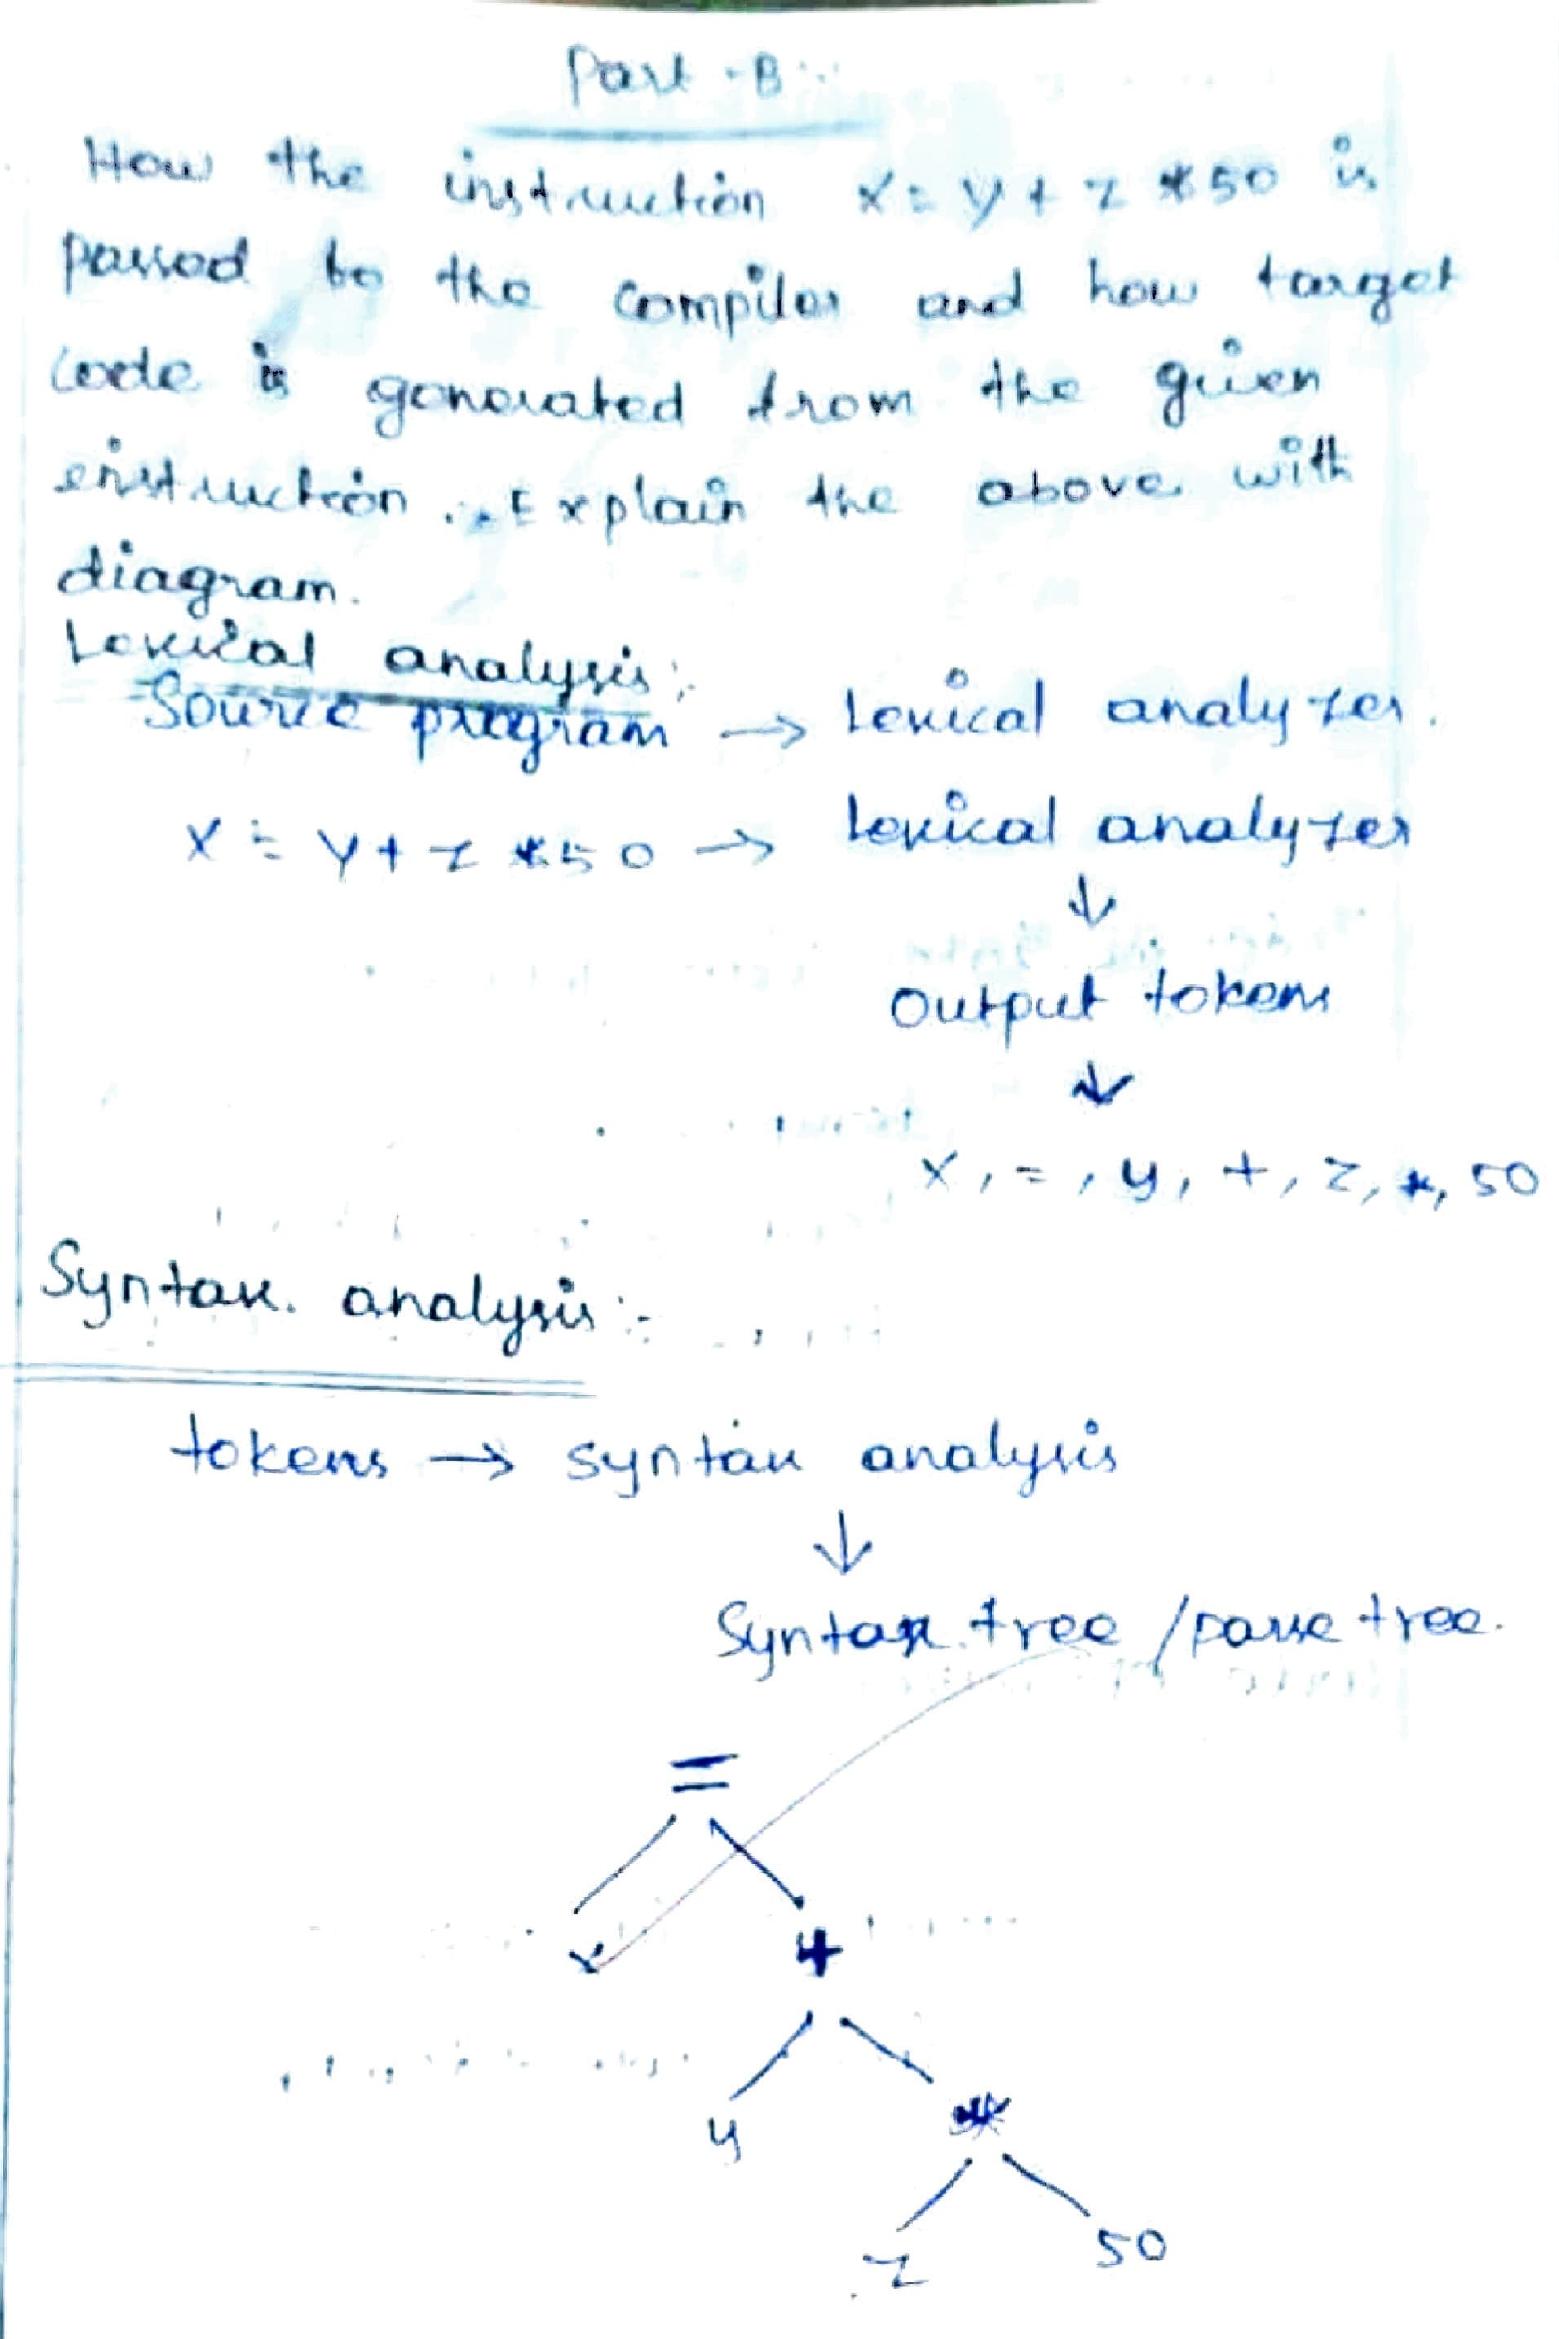 Part - B
How the instruction x = y + z * 50 is
passed to the compiler and how target
code is generated from the given
instruction. Explain the above with
diagram.
Lexical analysis:
Source program → Lexical analyzer.
x = y + z * 50 → Lexical analyzer
↓
Output tokens
↓
x, =, y, +, z, *, 50
Syntax. analysis:-
tokens → syntax analysis
↓
Syntax tree / parse tree.
=
x +
y *
z 50